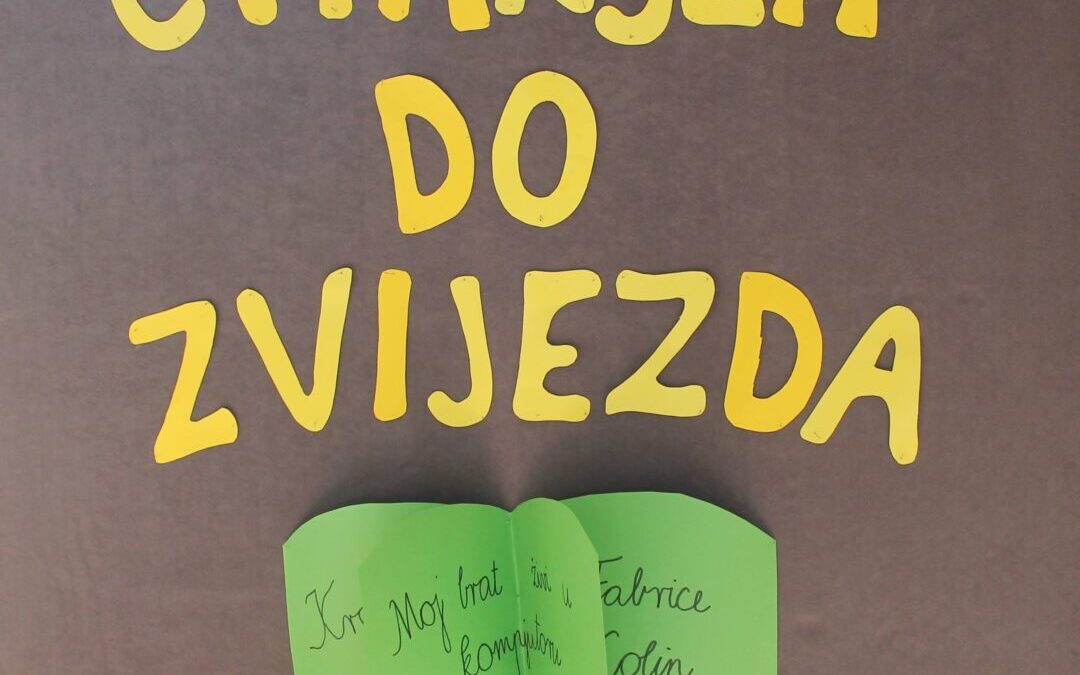 ČITANJEM
DO
ZVIJEZDA
Moj brat živi u
kompjutoru
Fabrice
Colin